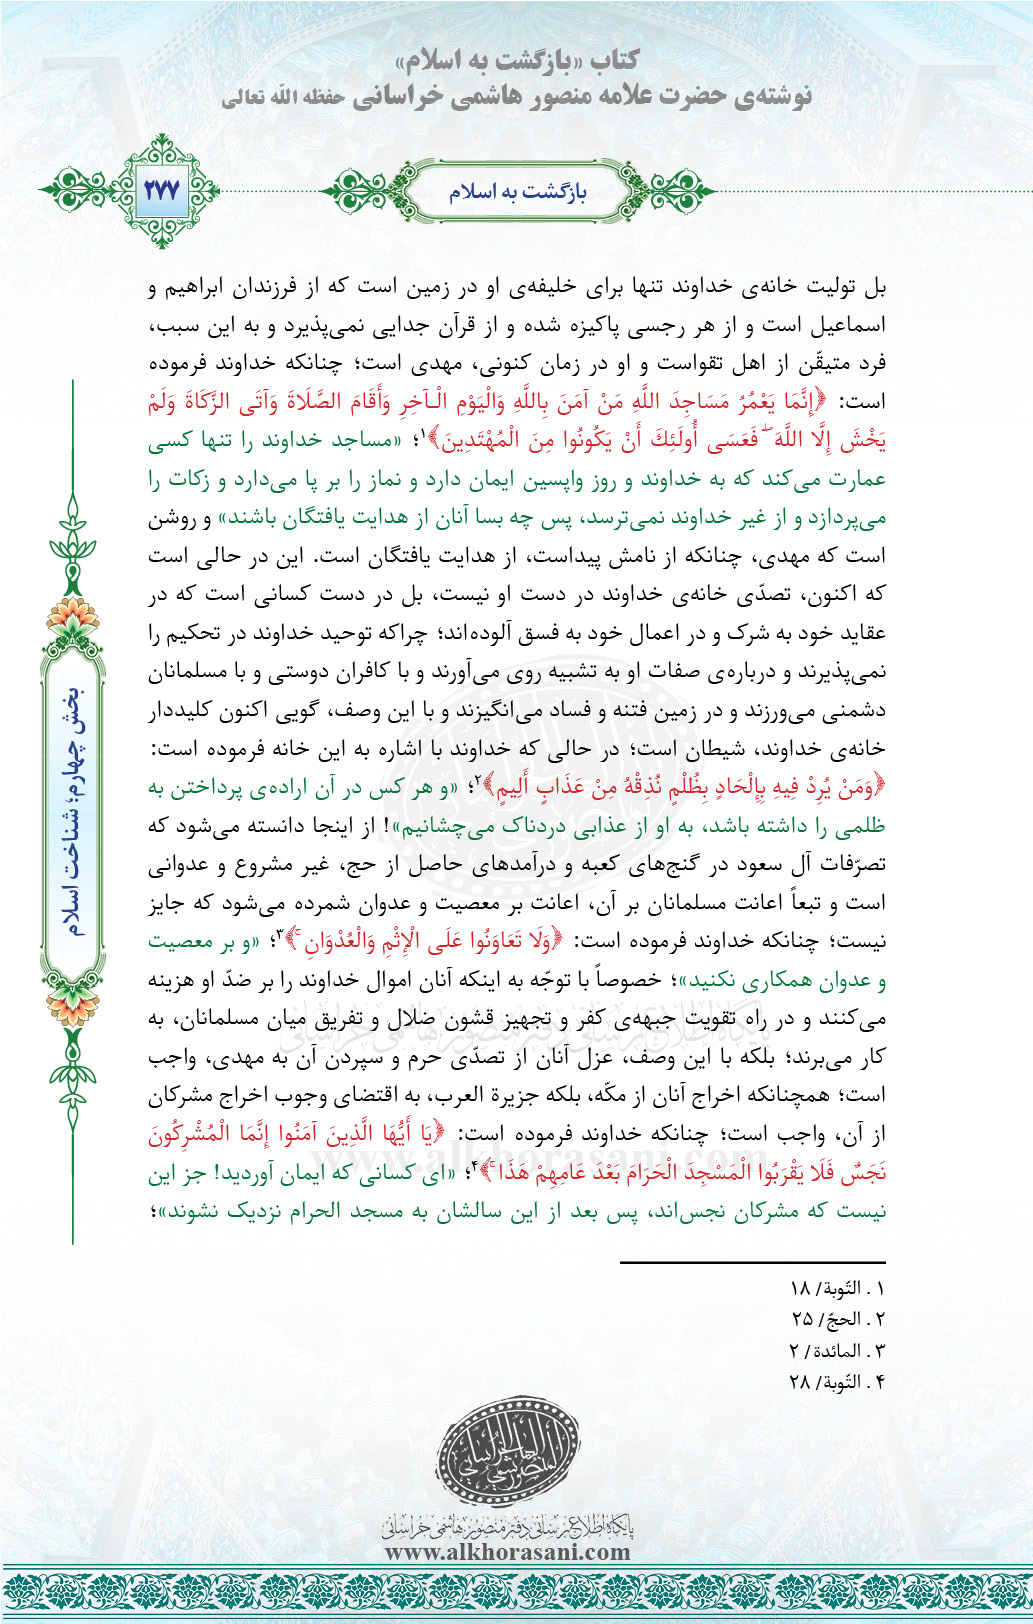 کتاب «بازگشت به اسلام»
نوشته‌ی حضرت علامه منصور هاشمی خراسانی حفظه الله تعالی
بازگشت به اسلام
۲۷۷
بل تولیت خانه‌ی خداوند تنها برای خلیفه‌ی او در زمین است که از فرزندان ابراهیم و
اسماعیل است و از هر رجسی پاکیزه شده و از قرآن جدایی نمی‌پذیرد و به این سبب،
فرد متیقّن از اهل تقواست و او در زمان کنونی، مهدی است؛ چنانکه خداوند فرموده
است: ﴿إِنَّمَا يَعْمُرُ مَسَاجِدَ اللَّهِ مَنْ آمَنَ بِاللَّهِ وَالْيَوْمِ الْـآخِرِ وَأَقَامَ الصَّلَاةَ وَآتَى الزَّكَاةَ وَلَمْ
يَخْشَ إِلَّا اللَّهَ ۖ فَعَسَى أُولَئِكَ أَنْ يَكُونُوا مِنَ الْمُهْتَدِينَ﴾۱؛ «مساجد خداوند را تنها کسی
عمارت می‌کند که به خداوند و روز واپسین ایمان دارد و نماز را بر پا می‌دارد و زکات را
می‌پردازد و از غیر خداوند نمی‌ترسد، پس چه بسا آنان از هدایت یافتگان باشند» و روشن
است که مهدی، چنانکه از نامش پیداست، از هدایت یافتگان است. این در حالی است
که اکنون، تصدّی خانه‌ی خداوند در دست او نیست، بل در دست کسانی است که در
عقاید خود به شرک و در اعمال خود به فسق آلوده‌اند؛ چراکه توحید خداوند در تحکیم را
نمی‌پذیرند و درباره‌ی صفات او به تشبیه روی می‌آورند و با کافران دوستی و با مسلمانان
دشمنی می‌ورزند و در زمین فتنه و فساد می‌انگیزند و با این وصف، گویی اکنون کلیددار
خانه‌ی خداوند، شیطان است؛ در حالی که خداوند با اشاره به این خانه فرموده است:
﴿وَمَنْ يُرِدْ فِيهِ بِإِلْحَادٍ بِظُلْمٍ نُذِقْهُ مِنْ عَذَابٍ أَلِيمٍ﴾۲؛ «و هر کس در آن اراده‌ی پرداختن به
ظلمی را داشته باشد، به او از عذابی دردناک می‌چشانیم»! از اینجا دانسته می‌شود که
تصرّفات آل سعود در گنج‌های کعبه و درآمدهای حاصل از حج، غیر مشروع و عدوانی
است و تبعاً اعانت مسلمانان بر آن، اعانت بر معصیت و عدوان شمرده می‌شود که جایز
نیست؛ چنانکه خداوند فرموده است: ﴿وَلَا تَعَاوَنُوا عَلَى الْإِثْمِ وَالْعُدْوَانِ ۚ﴾۳؛ «و بر معصیت
و عدوان همکاری نکنید»؛ خصوصاً با توجّه به اینکه آنان اموال خداوند را بر ضدّ او هزینه
می‌کنند و در راه تقویت جبهه‌ی کفر و تجهیز قشون ضلال و تفریق میان مسلمانان، به
کار می‌برند؛ بلکه با این وصف، عزل آنان از تصدّی حرم و سپردن آن به مهدی، واجب
است؛ همچنانکه اخراج آنان از مکّه، بلکه جزیرة العرب، به اقتضای وجوب اخراج مشرکان
از آن، واجب است؛ چنانکه خداوند فرموده است: ﴿يَا أَيُّهَا الَّذِينَ آمَنُوا إِنَّمَا الْمُشْرِكُونَ
نَجَسٌ فَلَا يَقْرَبُوا الْمَسْجِدَ الْحَرَامَ بَعْدَ عَامِهِمْ هَذَا ۚ﴾۴؛ «ای کسانی که ایمان آوردید! جز این
نیست که مشرکان نجس‌اند، پس بعد از این سالشان به مسجد الحرام نزدیک نشوند»؛
بخش چهارم؛ شناخت اسلام
۱ . التّوبة/ ۱۸
۲ . الحجّ/ ۲۵
۳ . المائدة/ ۲
۴ . التّوبة/ ۲۸
پایگاه اطلاع‌رسانی دفتر منصور هاشمی خراسانی
www.alkhorasani.com